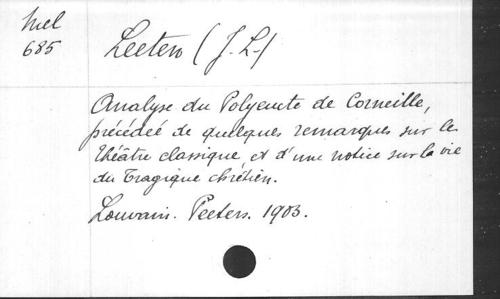 Mel
685
Leeters (J. L.)
Analyse du Polyeucte de Corneille,
précédéé de quelques remarques sur le
théâtre classique, et d'une notice sur la vie
du Tragique chrétien.
Louvain. Peeters. 1903.